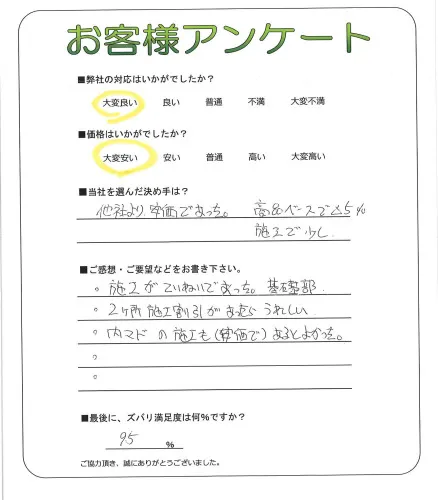 お客様アンケート
■弊社の対応はいかがでしたか?
大変良い 良い 普通 不満 大変不満
■価格はいかがでしたか?
大変安い 安い 普通 高い 大変高い
■当社を選んだ決め手は?
他社より、安価であった。 商品ベースで△5%
施工で少し
■ご感想・ご要望などをお書き下さい。
。施工がていねいであった。基礎部
。2ヶ所施工割引があったら うれしい
。内マドの施工も(安価で)あるとよかった。
。
。
■最後に、ズバリ満足度は何%ですか?
95 %
ご協力頂き、誠にありがとうございました。